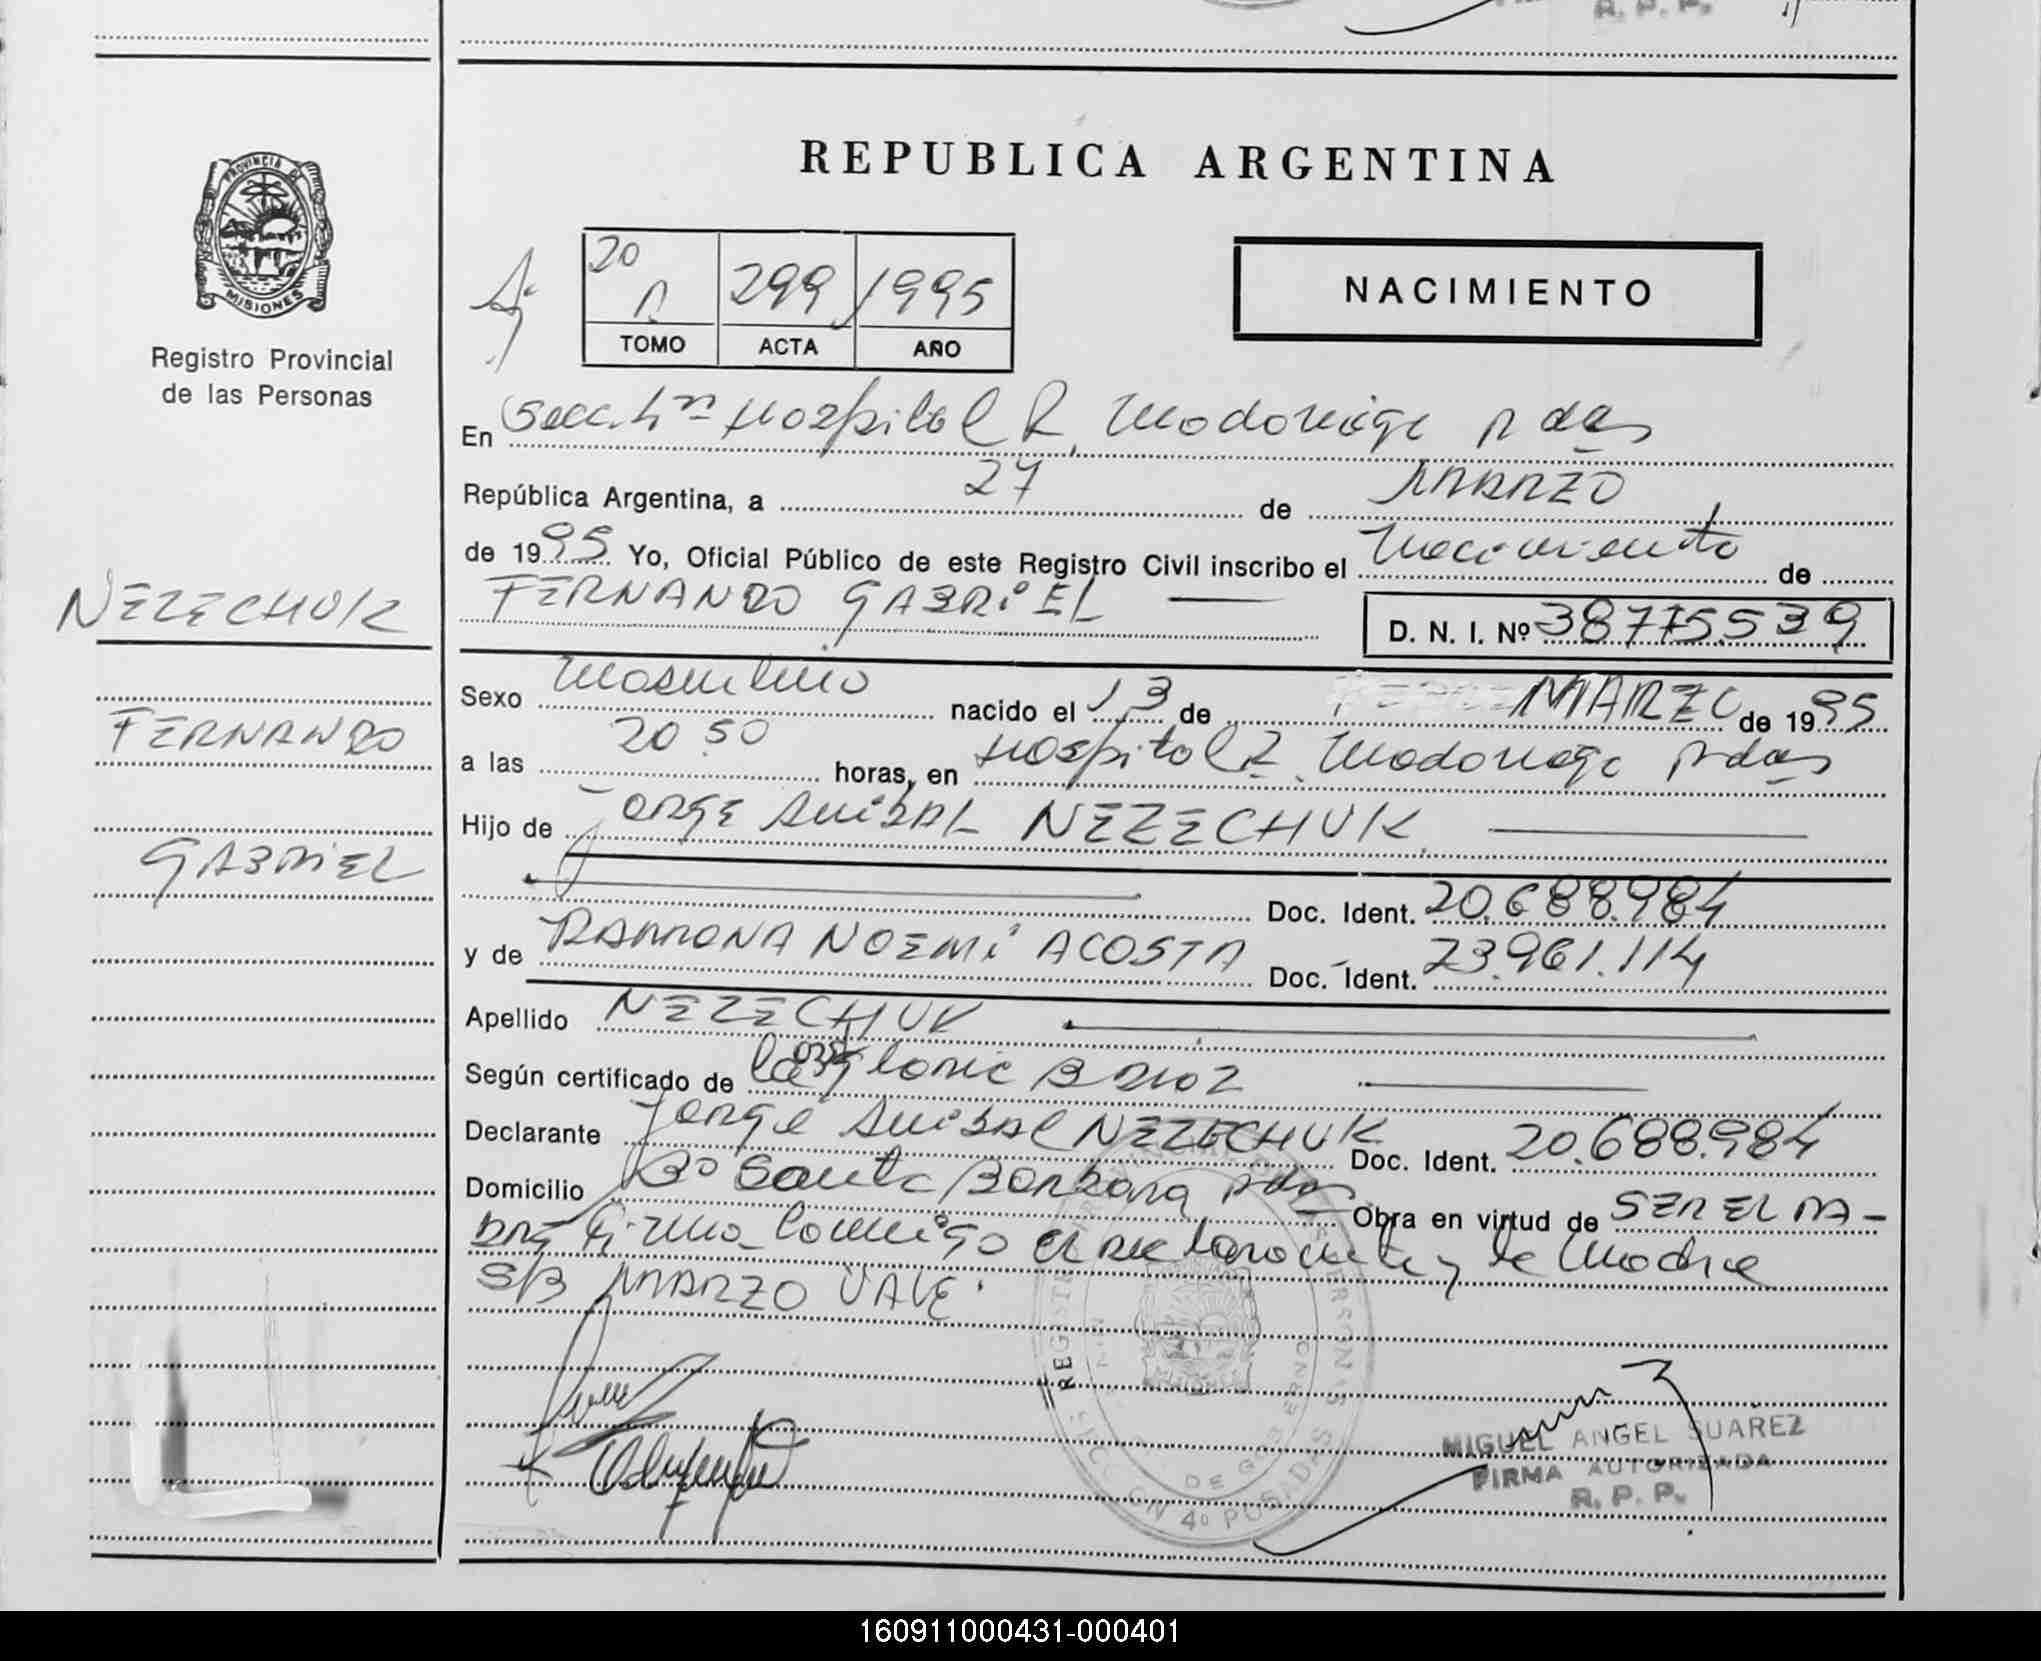 R. P. P.
REPUBLICA ARGENTINA
PROVINCIA DE
MISIONES
Registro Provincial
de las Personas
20
A 299 1995
TOMO ACTA AÑO
NACIMIENTO
En Secc. 4ta Hospital R. Madariaga Pdas
República Argentina, a 27 de MARZO
de 1995 Yo, Oficial Público de este Registro Civil inscribo el Nacimiento de
FERNANDO GABRIEL
D. N. I. Nº 38775.539
NEZECHUK
FERNANDO
GABRIEL
Sexo Masculino nacido el 13 de MARZO de 1995
a las 20 50 horas, en Hospital R. Madariaga Pdas
Hijo de Jorge Anibal NEZECHUK
Doc. Ident. 20.688.984
y de RAMONA NOEMi ACOSTA Doc. Ident. 23.961.114
Apellido NEZECHUK
Según certificado de
Declarante Jorge Anibal NEZECHUK Doc. Ident. 20.688.984
Domicilio Bº Santa Barbara Pdas Obra en virtud de SER EL PA-
DRE Firma Conmigo el declarante y la Madre
S/B MARZO VALE.
REGISTRO PROVINCIAL DE LAS PERSONAS
MIN. DE GOBIERNO
SECCION 4º POSADAS
MIGUEL ANGEL SUAREZ
FIRMA AUTORIZADA
R. P. P.
160911000431-000401